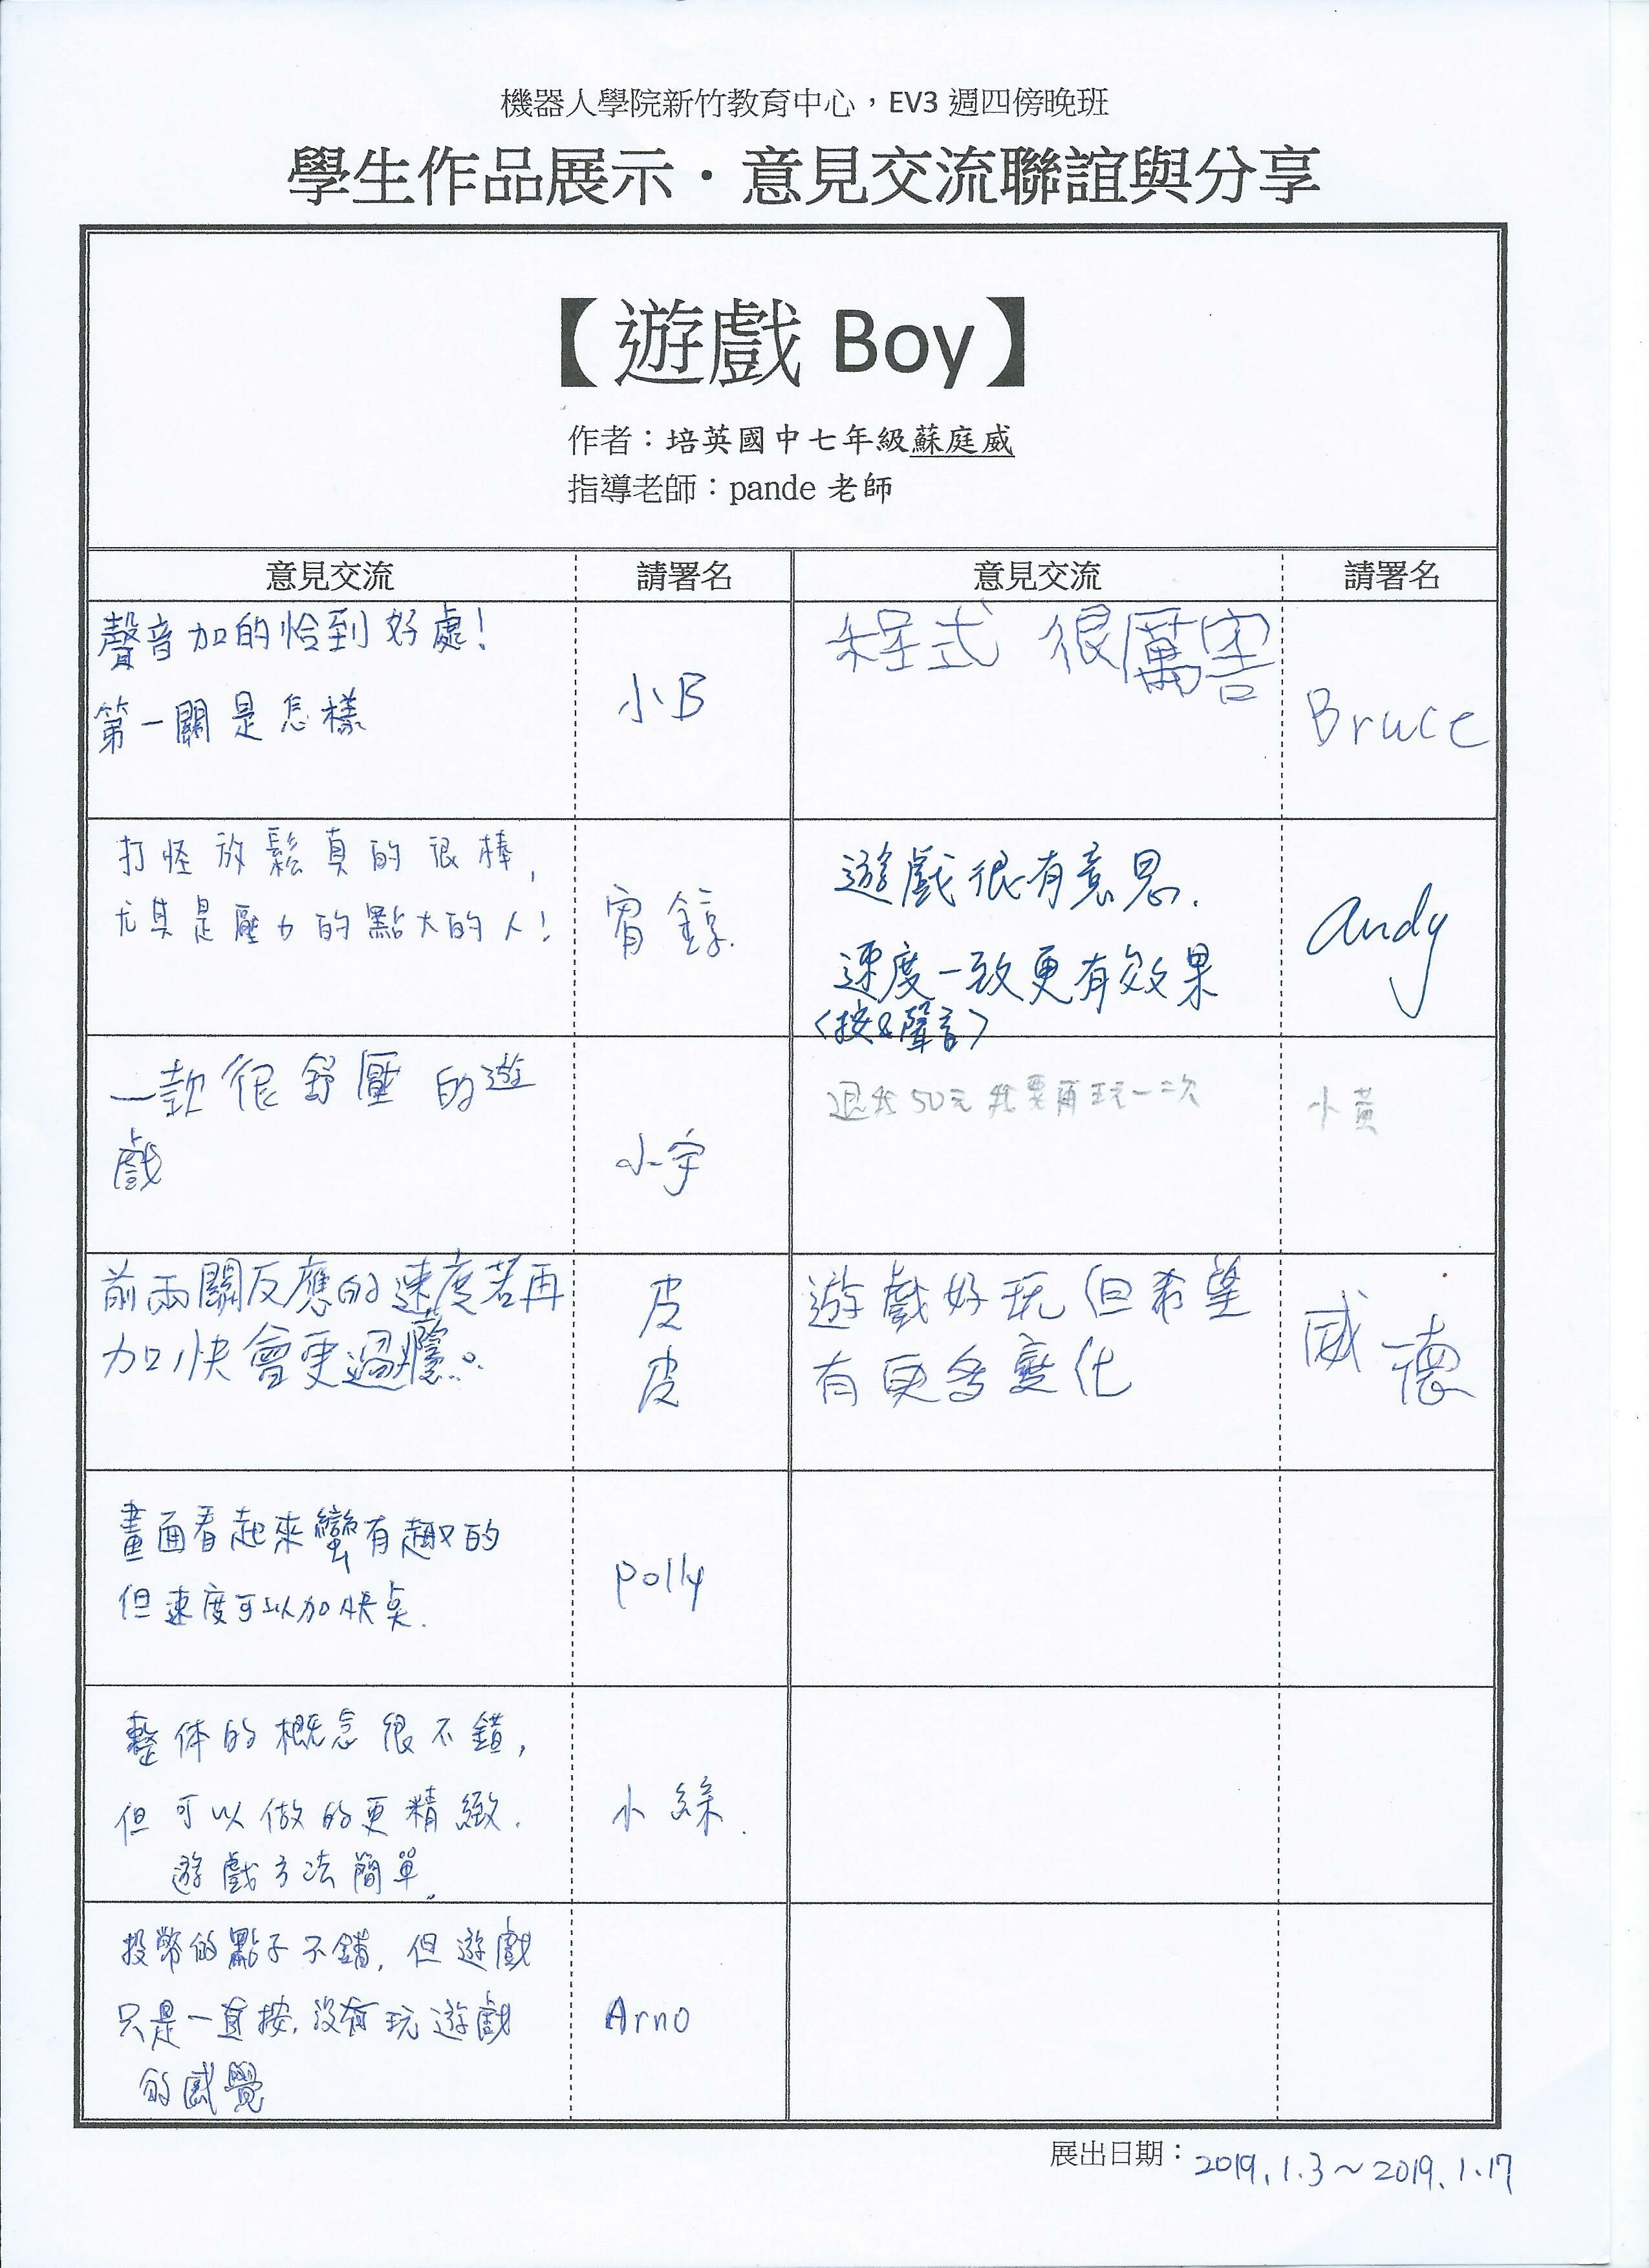 機器人學院新竹教育中心，EV3 週四傍晚班
學生作品展示・意見交流聯誼與分享
【遊戲 Boy】
作者：培英國中七年級蘇庭威
指導老師：pande 老師
意見交流 請署名 意見交流 請署名
聲音加的恰到好處!
第一關是怎樣
小B
程式 很厲害
Bruce
打怪放鬆真的很棒,
尤其是壓力的點大的人!
宥錞.
遊戲很有意思.
速度一致更有效果
(按&聲音)
andy
一款很舒壓的遊
戲
小宇
退我50元我要再玩一次
小黃
前兩關反應的速度若再
加快會更過癮。
皮
皮
遊戲好玩但希望
有更多變化
威德
畫面看起來蠻有趣的
但速度可以加快臭.
polly
整体的概念很不錯,
但可以做的更精緻.
遊戲方法簡單.
小綵.
投幣的點子不錯, 但遊戲
只是一直按, 沒有玩遊戲
的感覺
Arno
展出日期：2019.1.3～2019.1.17